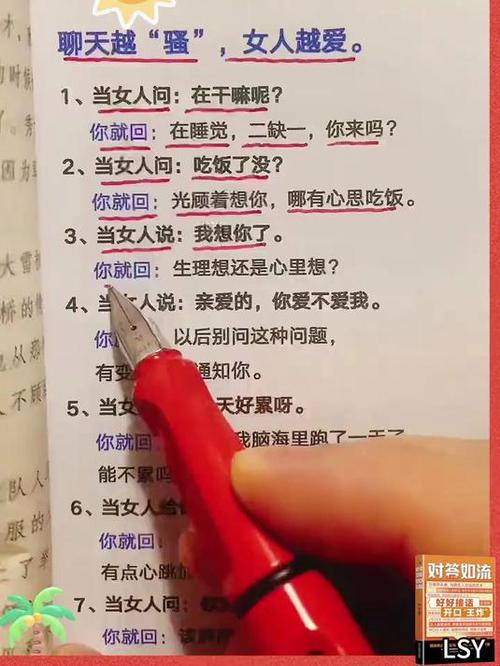 聊天越“骚”，女人越爱。
1、当女人问：在干嘛呢？
你就回：在睡觉，二缺一，你来吗？
2、当女人问：吃饭了没？
你就回：光顾着想你，哪有心思吃饭。
3、当女人说：我想你了。
你就回：生理想还是心里想？
4、当女人说：亲爱的，你爱不爱我。
你 以后别问这种问题，
有变 通知你。
5、当女 天好累呀。
你就回 我脑海里跑了一天了
能不累吗
6、当女人给
你就回：
有点心跳加
7、当女人问：
你就回：该
对答如流
好好接话
开口“王炸”
LSY